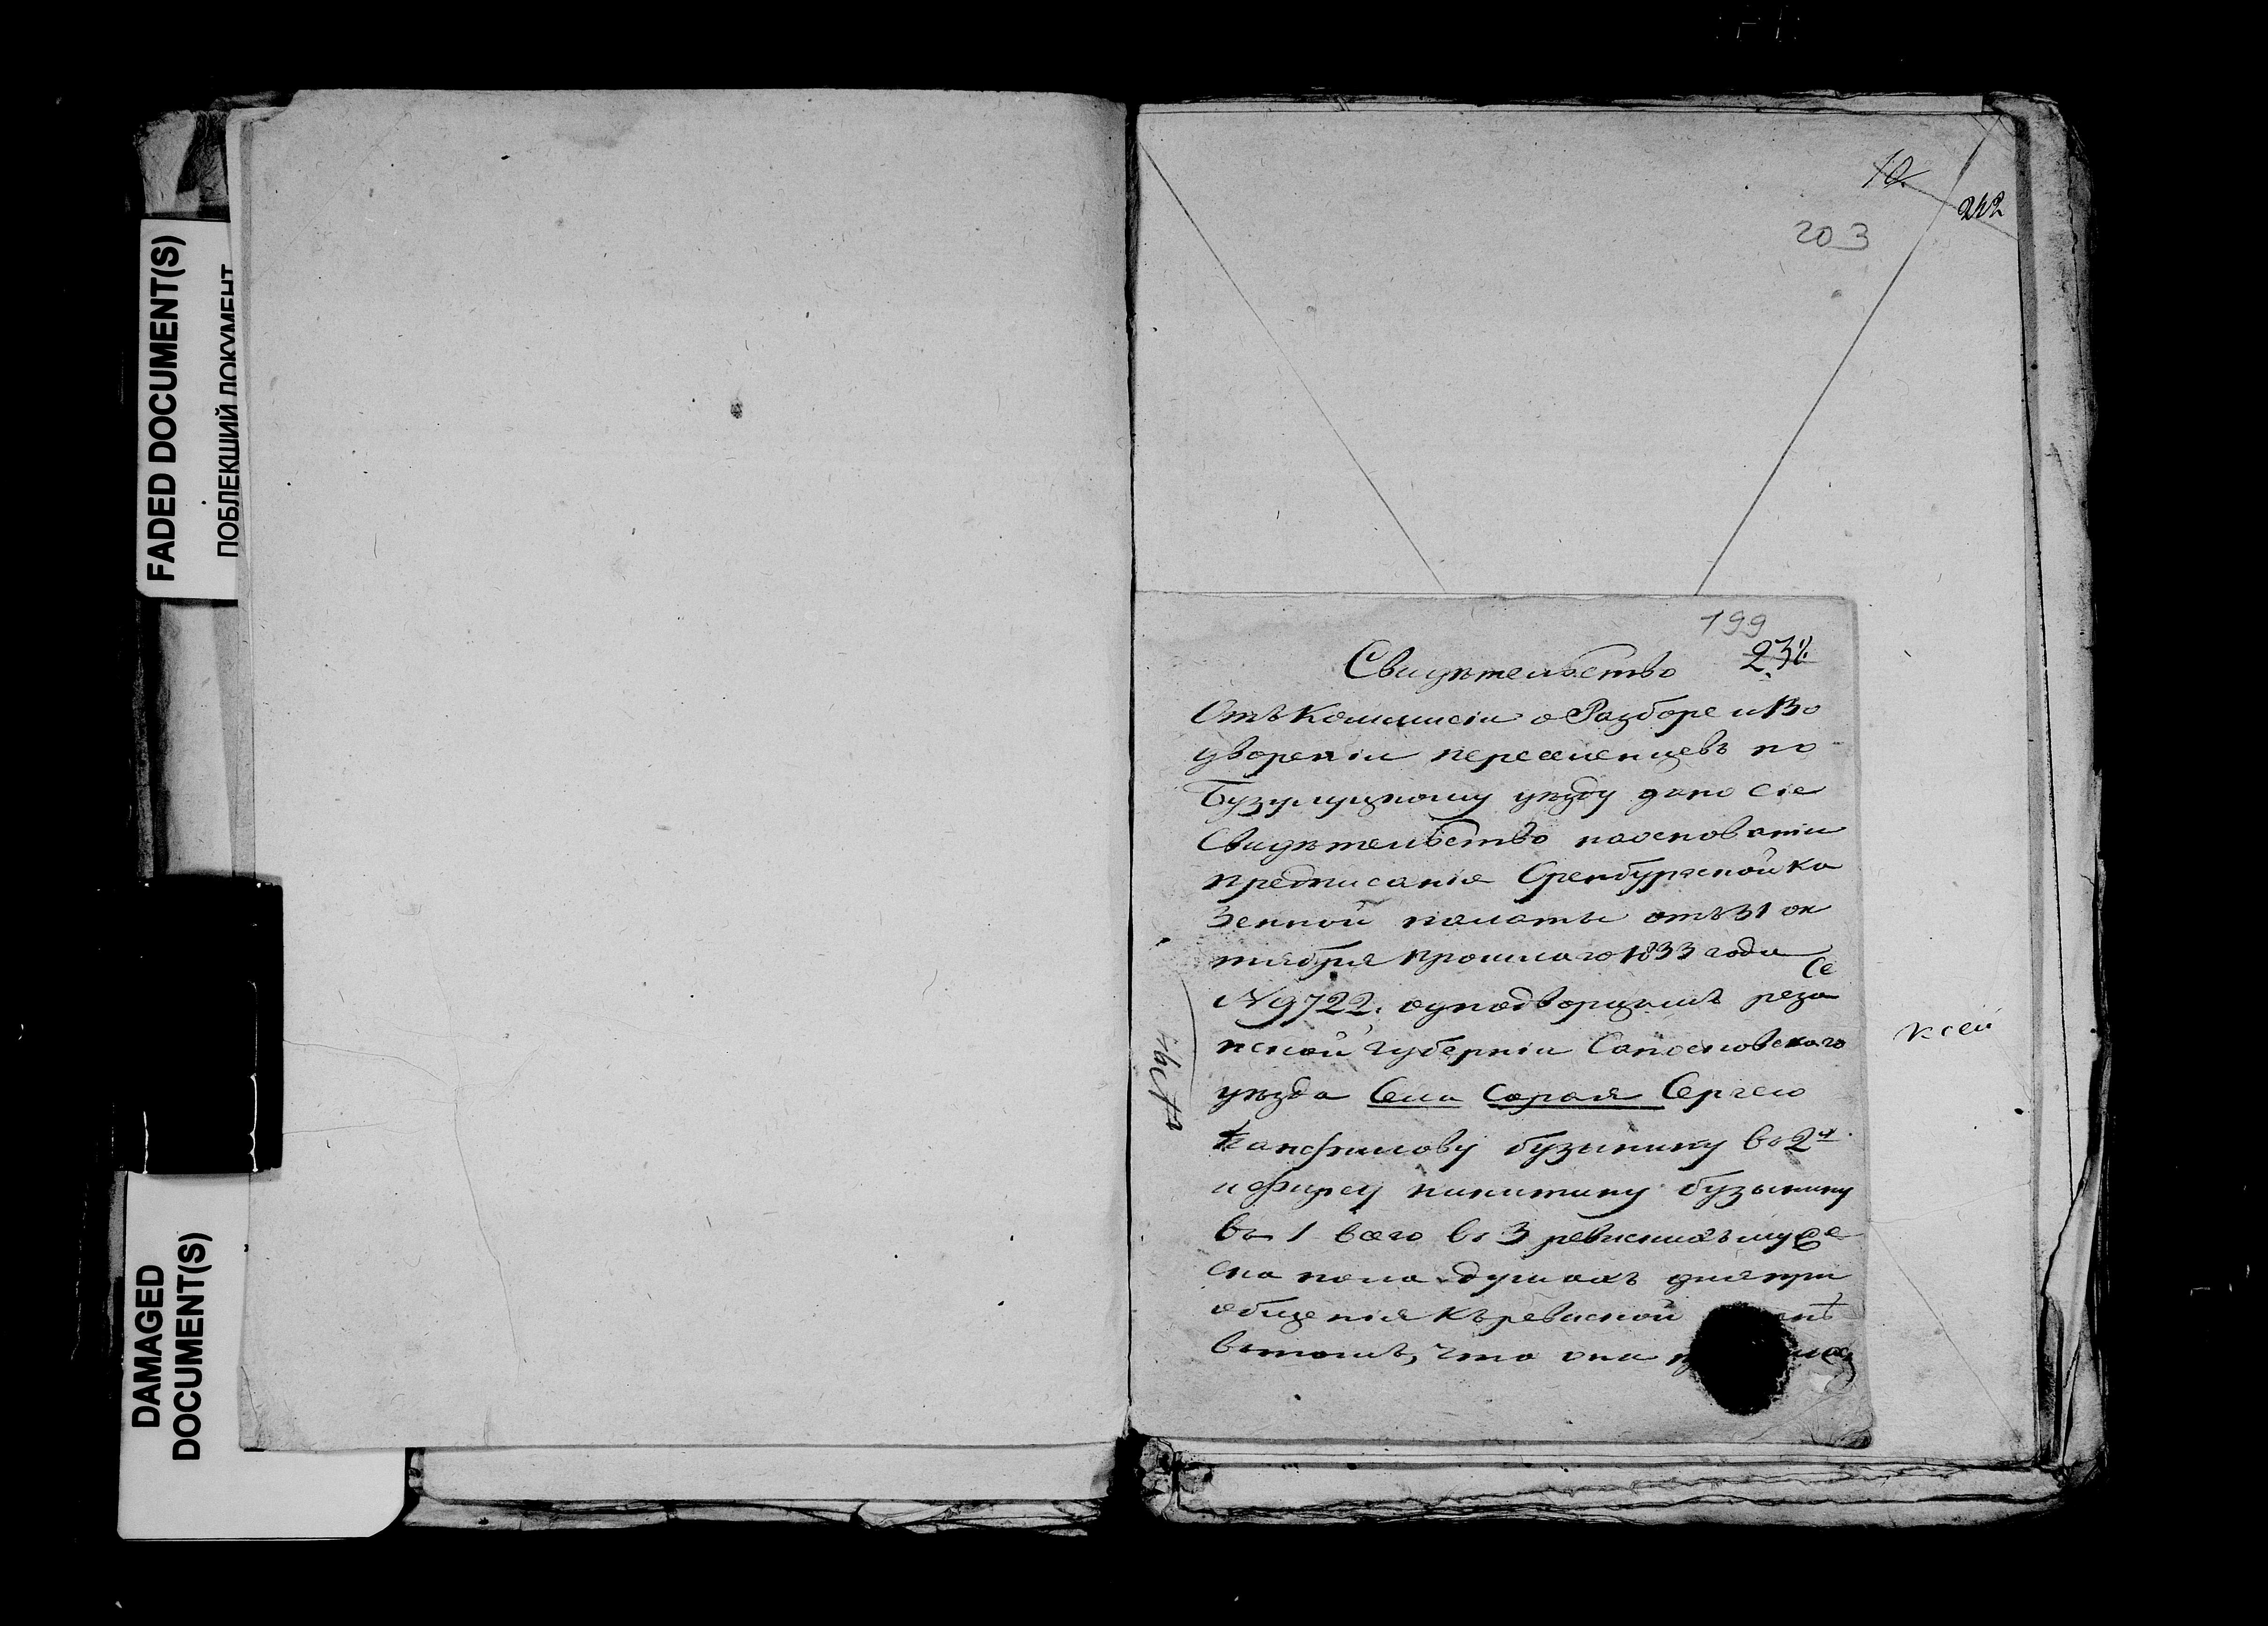 FADED DOCUMENT(S)
ПОБЛЕКШИЙ ДОКУМЕНТ
DAMAGED
DOCUMENT(S)
10.
242
203
199
Свидѣтельство
Отъ Коммисіи о Разборе и Во
двореніи переселенцевъ по
Бузулуцкому уѣзду дано сіе
Свидѣтельство наоснованіи
предписанія Оренбургской ка
зенной палаты отъ 31 ок
тября прошлаго 1833 года
№ 9722. однодворцамъ реза
нской губерніи Сапосковского
уѣзда Села Сараи Сергею
Панфилову бузынину во 2й
и Фирсу никитину бузынину
во 1 всего во 3 ревискихъ муже
ска пола душахъ для при
общенія къ ревиской
втомъ, что они